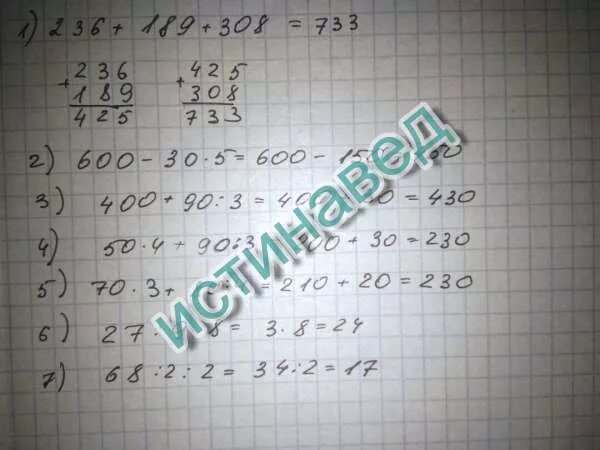 1) 236 + 189 + 308 = 733
+ 236 + 425
189 308
425 733
2) 600 - 30 · 5 = 600 - 150
3) 400 + 90 : 3 = 400 = 430
4) 50 · 4 + 90 : 3 + 30 = 230
5) 70 · 3 + = 210 + 20 = 230
6) 27 · 8 = 3 · 8 = 24
7) 68 : 2 : 2 = 34 : 2 = 17
ИСТИНАВЕД